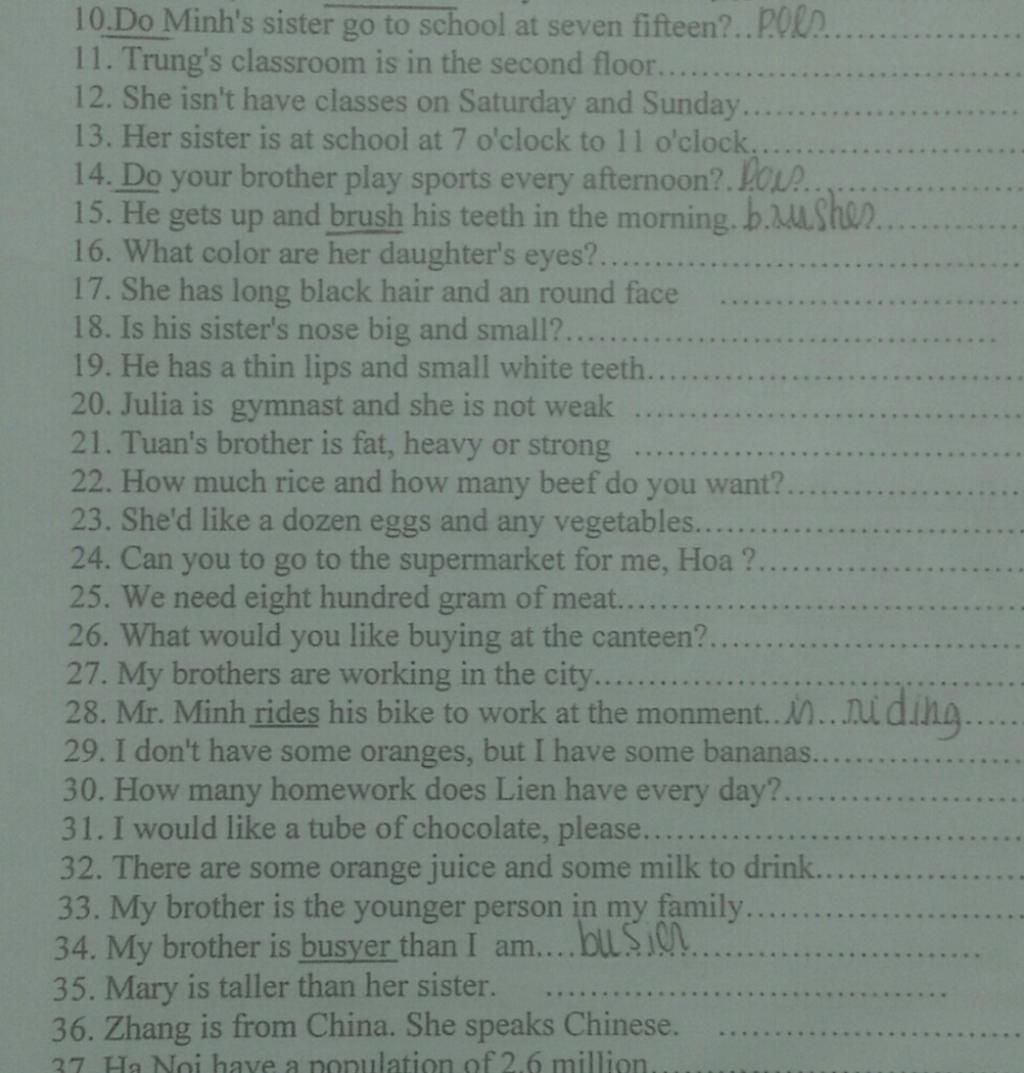 10.Do Minh's sister go to school at seven fifteen?..Does....................
11. Trung's classroom is in the second floor..............................
12. She isn't have classes on Saturday and Sunday.......................
13. Her sister is at school at 7 o'clock to 11 o'clock......................
14. Do your brother play sports every afternoon?.Does....................
15. He gets up and brush his teeth in the morning.brushes...............
16. What color are her daughter's eyes?....................................
17. She has long black hair and an round face .........................
18. Is his sister's nose big and small?...................................
19. He has a thin lips and small white teeth...............................
20. Julia is gymnast and she is not weak ................................
21. Tuan's brother is fat, heavy or strong ................................
22. How much rice and how many beef do you want?...................
23. She'd like a dozen eggs and any vegetables...........................
24. Can you to go to the supermarket for me, Hoa ?......................
25. We need eight hundred gram of meat..................................
26. What would you like buying at the canteen?..........................
27. My brothers are working in the city....................................
28. Mr. Minh rides his bike to work at the monment..is...riding.....
29. I don't have some oranges, but I have some bananas.................
30. How many homework does Lien have every day?....................
31. I would like a tube of chocolate, please................................
32. There are some orange juice and some milk to drink.................
33. My brother is the younger person in my family.......................
34. My brother is busyer than I am....busier..........................
35. Mary is taller than her sister. ...................................
36. Zhang is from China. She speaks Chinese. .........................
37. Ha Noi have a population of 2.6 million...............................